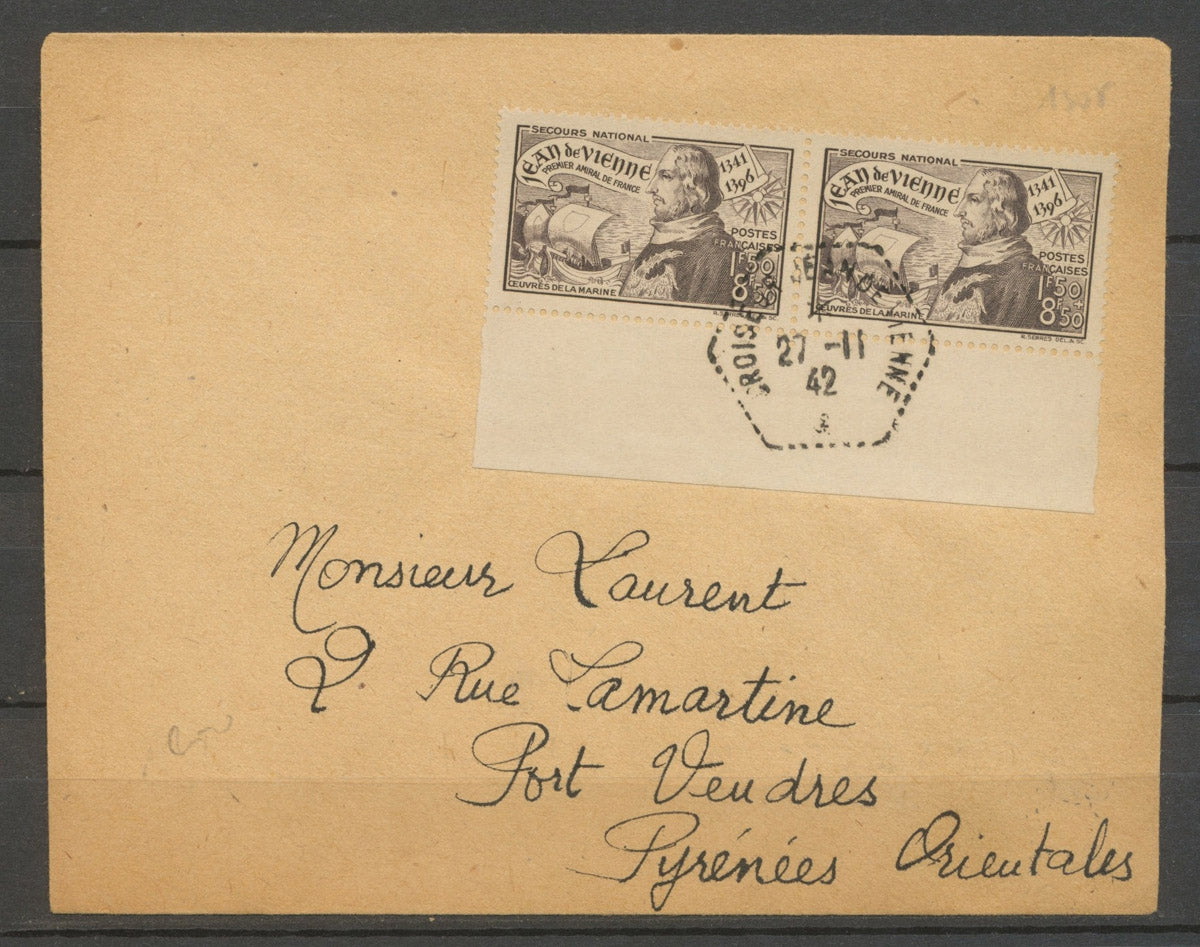 SECOURS NATIONAL
JEAN de VIENNE
PREMIER AMIRAL DE FRANCE
1341
1396
POSTES
FRANÇAISES
1F50
+
8F50
ŒUVRES DE LA MARINE
SECOURS NATIONAL
JEAN de VIENNE
PREMIER AMIRAL DE FRANCE
1341
1396
POSTES
FRANÇAISES
1F50
+
8F50
ŒUVRES DE LA MARINE
R. SERRES DEL. & SC.
JEAN DE VIENNE
27 -11
42
Monsieur Laurent
2 Rue Lamartine
Port Vendres
Pyrénées Orientales